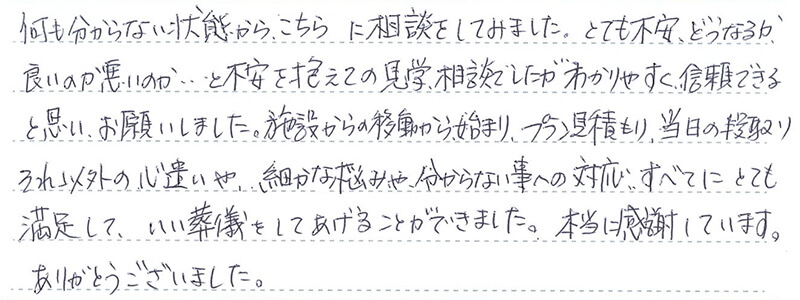 何も分からない状態から、こちら に相談をしてみました。とても不安、どうなるか、
良いのか悪いのか…と不安を抱えての見学、相談でしたがわかりやすく、信頼できる
と思い、お願いしました。施設からの移動から始まり、プラン見積もり、当日の段取り
それ以外の心遣いや、細かな悩みや、分からない事への対応、すべてにとても
満足して、いい葬儀をしてあげることができました。本当に感謝しています。
ありがとうございました。